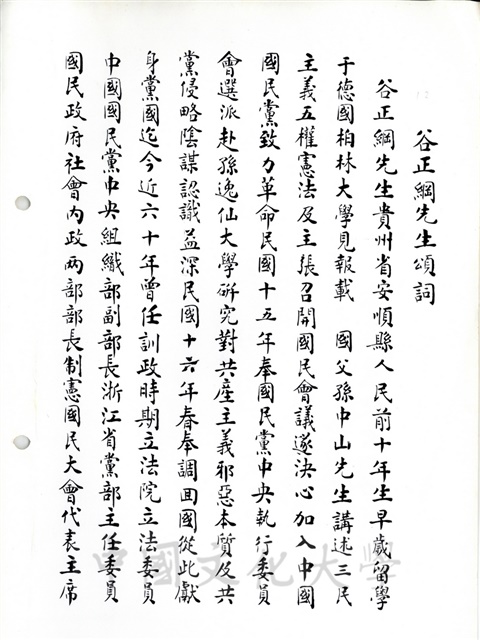 谷正綱先生頌詞
谷正綱先生貴州省安順縣人民前十年生早歲留學
于德國柏林大學見報載　國父孫中山先生講述三民
主義五權憲法及主張召開國民會議遂決心加入中國
國民黨致力革命民國十五年奉國民黨中央執行委員
會選派赴孫逸仙大學研究對共產主義邪惡本質及共
黨侵略陰謀認識益深民國十六年春奉調回國從此獻
身黨國迄今近六十年曾任訓政時期立法院立法委員
中國國民黨中央組織部副部長浙江省黨部主任委員
國民政府社會內政兩部部長制憲國民大會代表主席
中國文化大學